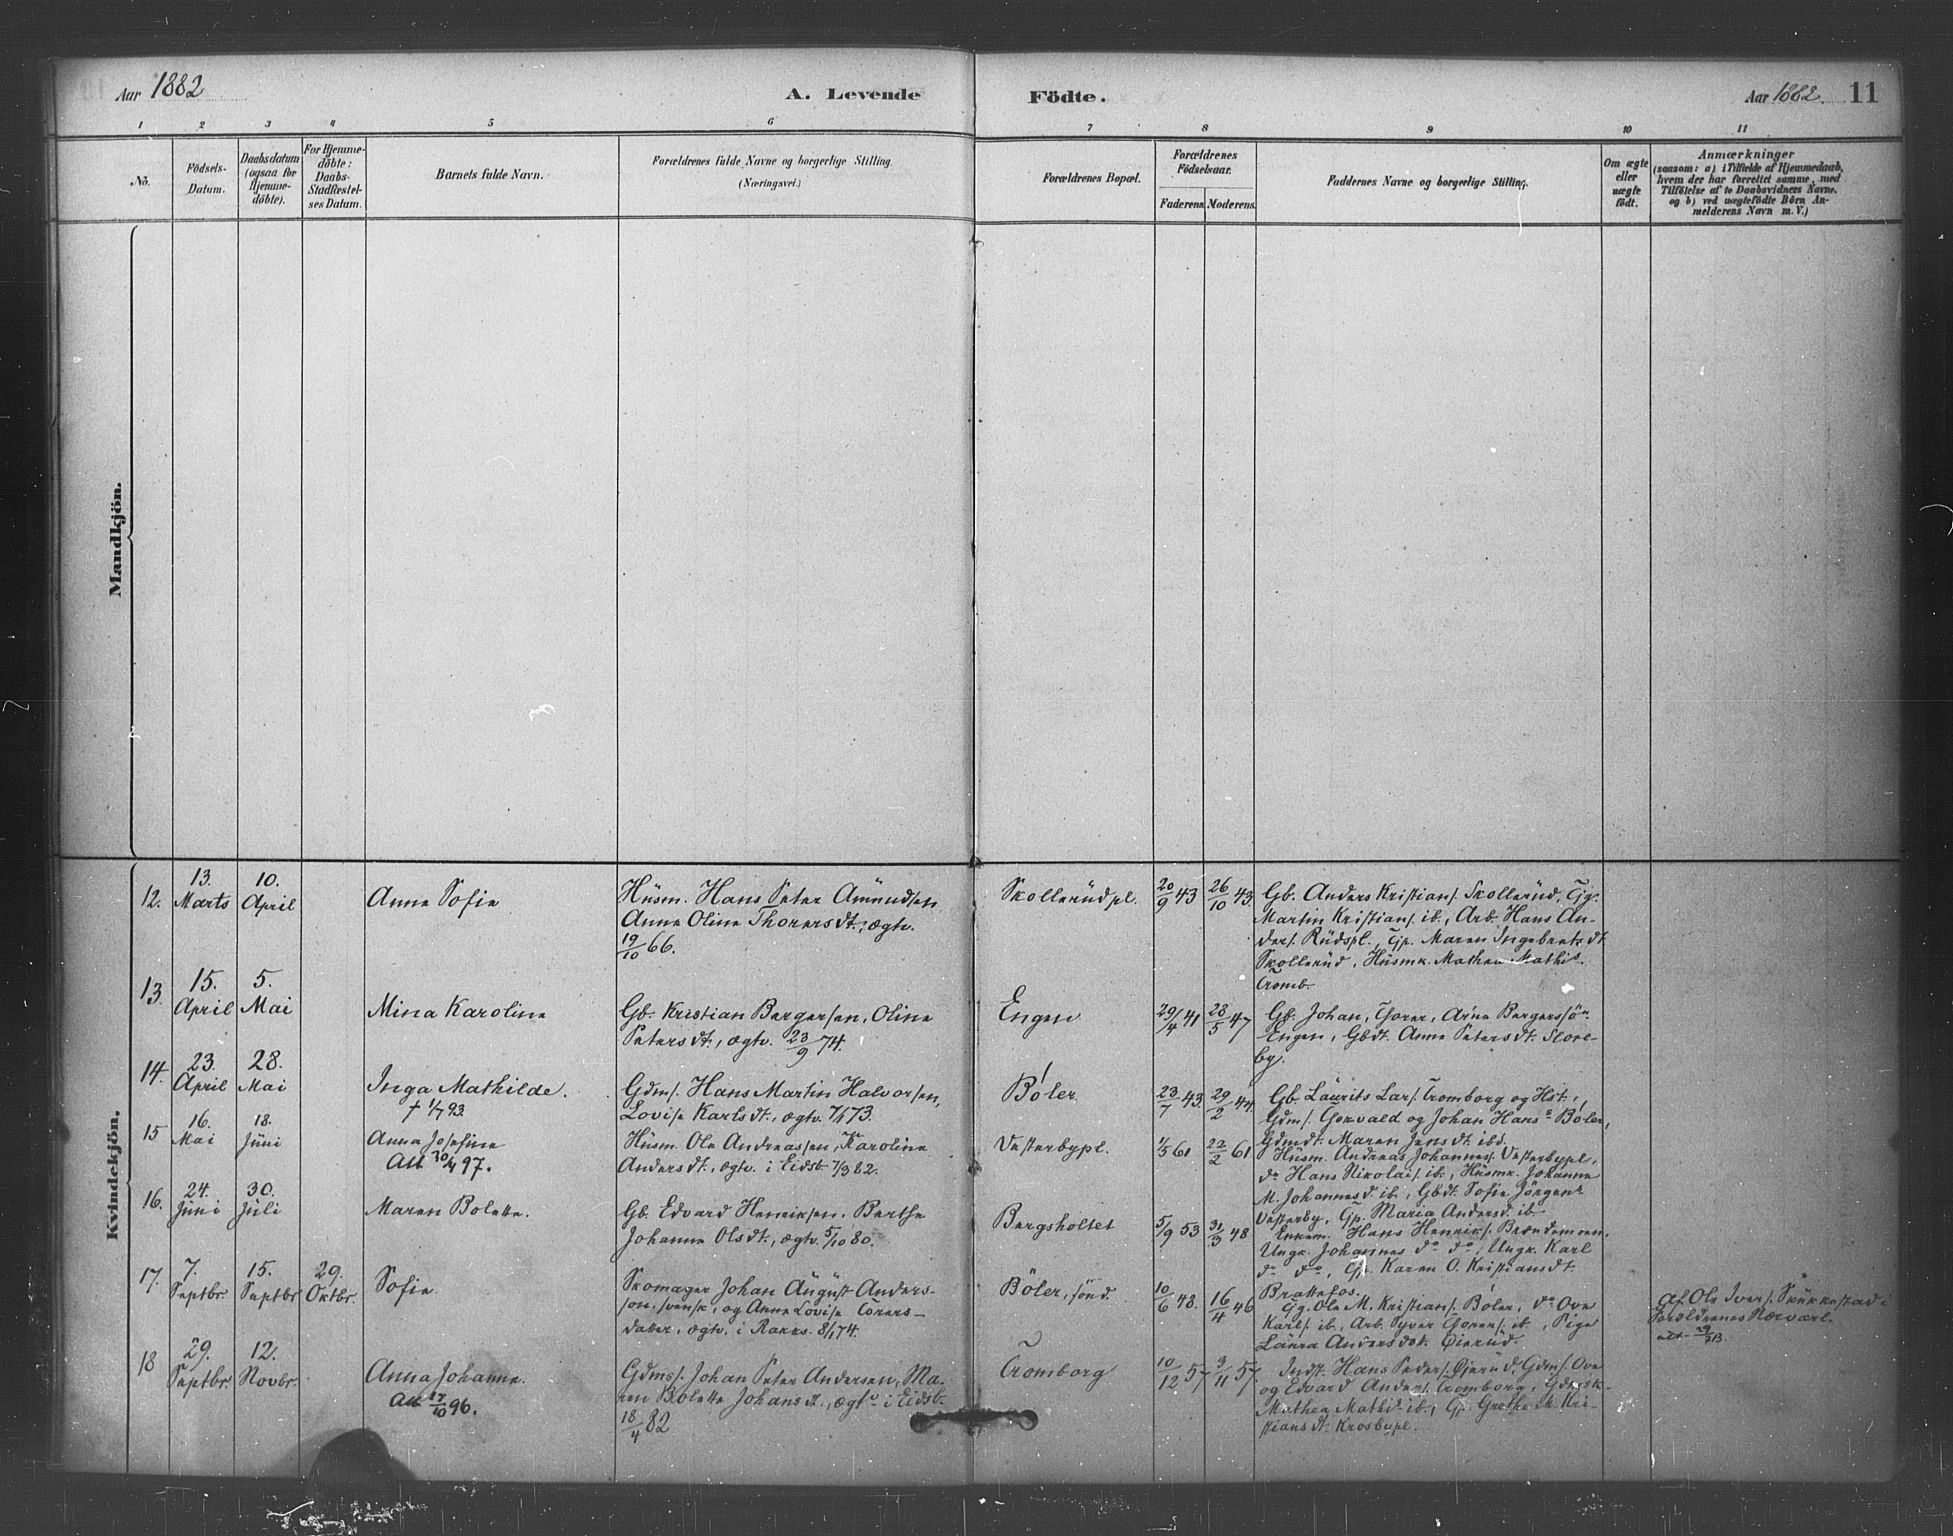 Aar 1882
A. Levende
Födte.
Aar 1882. 11
1 2 3 4 5 6 7 8 9 10 11
No.
Födsels-
Datum.
Daabsdatum
(ogsaa for
Hjemme-
döbte).
For Hjemme-
döbte:
Daabs-
Stadfæstel-
ses Datum.
Barnets fulde Navn.
Forældrenes fulde Navne og borgerlige Stilling.
(Næringsvei.)
Forældrenes Bopæl.
Forældrenes
Födselsaar.
Faderens. Moderens.
Faddernes Navne og borgerlige Stilling.
Om ægte
eller
uægte
födt.
Anmærkninger
(saasom: a) i Tilfælde af Hjemmedaab,
hvem der har forrettet samme, med
Tilföielse af to Daabsvidners Navne.
og b) ved uægtefödte Börn An-
melderens Navn m. V.)
Mandkjön.
Kvindekjön.
12. 13. Marts 10. April
Anne Sofie
Husm. Hans Peter Amundsen
Anne Oline Thorersdt., ægtv.
19/10 66.
Skollerudpl.
20/9 43 26/10 43.
Gb. Anders Kristians. Skollerud, Gg.
Martin Kristians. ib., Arb. Hans An-
ders. Rudspl., Gp. Maren Ingebretsdt.
Skollerud, Husmk. Mathea Mathis.
Tromb.
13. 15. April 5. Mai
Mina Karoline
Gb. Kristian Bergersen, Oline
Petersdt., ægtv. 23/9 74.
Engen
29/4 41 28/5 47
Gb. Johan, Torer, Arne Bergerssön
Engen, Gbdt. Anne Petersdt. Slore-
by.
14. 23. April 28. Mai
Inga Mathilde.
† 1/7 93
Gdms. Hans Martin Halvorsen,
Lovise Karlsdt., ægtv. 7/1 73.
Böler.
23/7 43. 29/2 44.
Gb. Laurits Lars. Tromborg og Hst.,
Gdms. Torvald og Johan Hans. Böler,
Gdmdt. Maren Jensdt. ibd.
15 16. Mai 18. Juni
Anna Josefine
Att 30/4 97.
Husm. Ole Andreassen, Karoline
Andersdt., ægtv. i Eidsb. 7/3 82.
Vesterbypl.
1/5 61 22/2 61
Husm. Andreas Johannes. Vesterbypl.,
do Hans Nikolais. ib., Husmk. Johanne
M. Johannesd. ib., Gbdt. Sofie Jörgens
Vesterby, Gp. Maria Andersd. ib.
16. 24. Juni 30. Juli
Maren Bolette.
Gb. Edvard Henriksen, Berthe
Johanne Olsdt., ægtv. 5/10 80.
Bergsholtet
5/9 53 31/3 48
Enkem. Hans Henriks. Brændemoen,
Ungk. Johannes do do, Ungk. Karl
do do, Gp. Karen O. Kristiansdt.
Brattefos.
17. 7. Septbr. 15. Septbr 29. Oktbr.
Sofie
Skomager Johan August Anders-
son, svensk, og Anne Lovise Torers-
datter, ægtv. i Rakks. 8/1 74.
Böler, sönd.
10/6 48. 16/4 46
Gg. Ole M. Kristians. Böler, do Ove
Karls. ib., Arb. Syver Torers. ib., Pige
Laura Andersdot. Öierud.
Af Ole Ivers. Skukkestad i
Foreldrenes Nærværl.
18 29. Septbr. 12. Novbr.
Anna Johanne.
Att 17/10 96.
Gdms. Johan Peter Andersen, Ma-
ren Bolette Johansdt., ægtv. i Eidsb.
18/4 82
Tromborg
10/12 57 3/11 57
Indst. Hans Peders. Öierud, Gdms. Ove
og Edvard Anders. Tromborg, Gdmsk.
Mathea Mathis. ib., Gp. Grethe M. Kri-
stiansdt. Krosbypl.